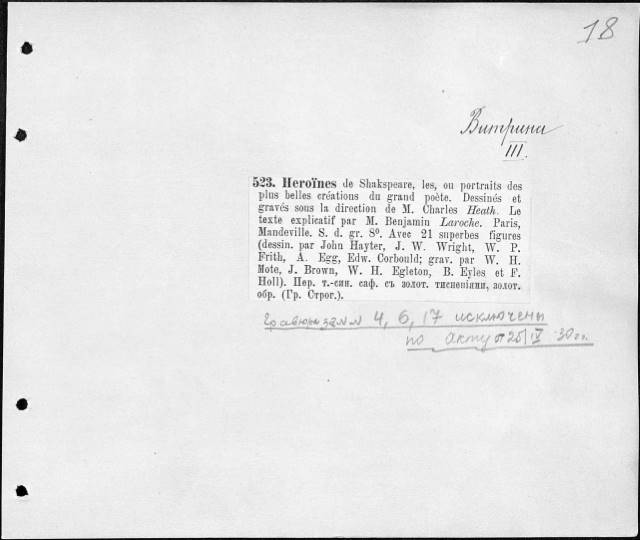 18
Витрина
III.
523. Heroïnes de Shakspeare, les, ou portraits des
plus belles créations du grand poète. Dessinés et
gravés sous la direction de M. Charles Heath. Le
texte explicatif par M. Benjamin Laroche. Paris,
Mandeville. S. d. gr. 8º. Avec 21 superbes figures
(dessin. par John Hayter, J. W. Wright, W. P.
Frith, A. Egg, Edw. Corbould; grav. par W. H.
Mote, J. Brown, W. H. Egleton, B. Eyles et F.
Holl). Пер. т.-син. саф. съ золот. тисненіями, золот.
обр. (Гр. Строг.).
Гравюры за №№ 4, 6, 17 исключены
по акту от 25/IV 30 г.